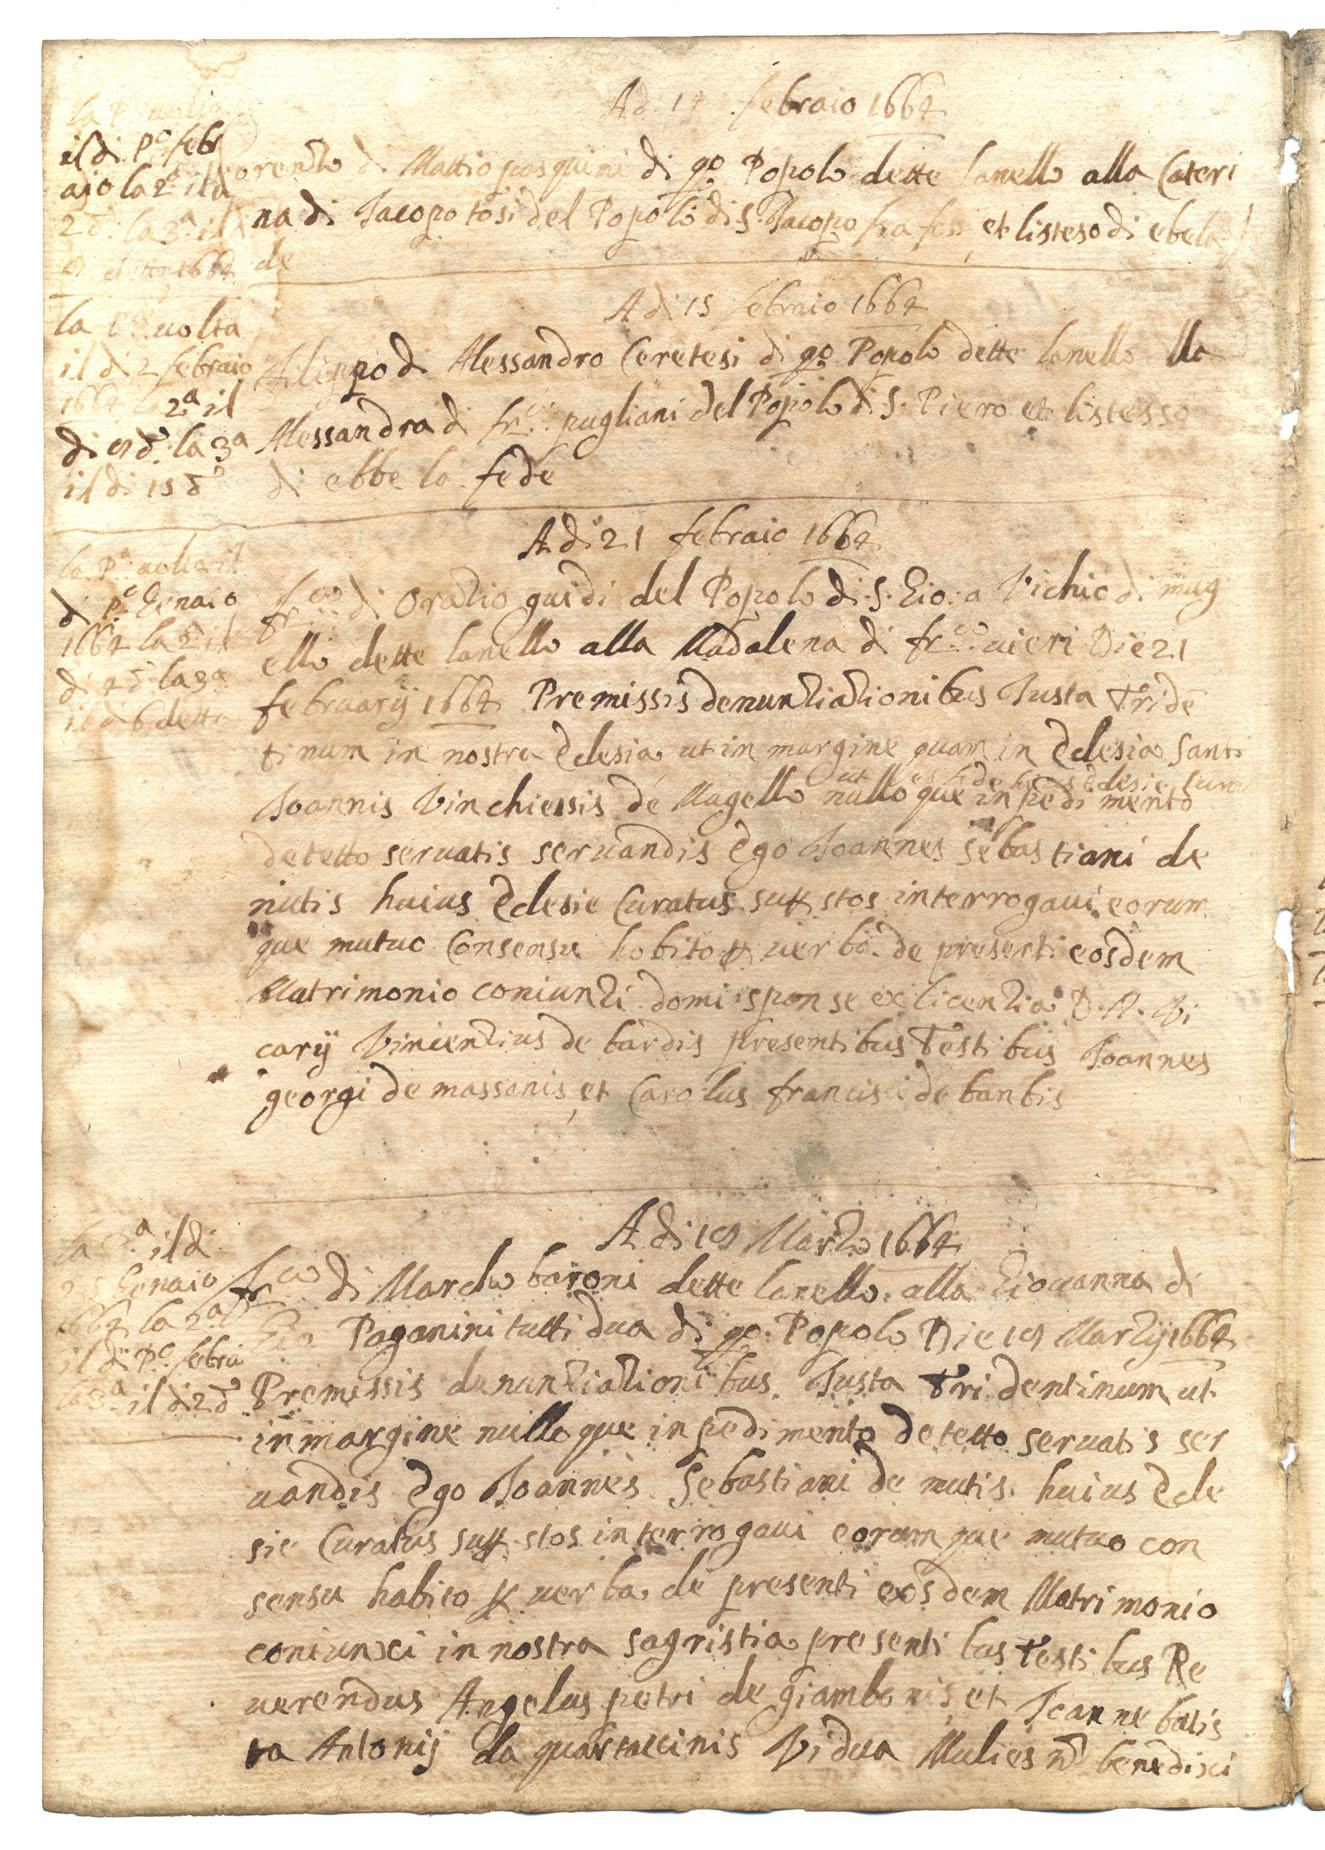 Adi 14 febraio 1664
la Pa uolta
il di Po febr
aio la 2a il di
2 do la 3a il di
detto 1664
orenzo di Mattio pasquini di qo Popolo dette lanello alla Cateri
na di Jacopo tosi del Popolo di S. Jacopo fra fossi et listeso di ebe la
de
Adi 15 febraio 1664
la Pa uolta
il di 2 febraio
1664 la 2a il
di 9 do la 3a
il di 15 do
filippo di Alessandro Ceretesi di qo Popolo dette lanello lla
Alessandra di frco pugliani del Popolo di S. Piero et listesso
di ebbe la fede
Adi 21 febraio 1664
la Pa uolta il
di Po Genaio
1664 la 2a il
di 4 do la 3a
il di 6 detto
frco di Orazio guidi del Popolo di S. Gio: a Vichio di mug
ello dette lanello alla Madalena di frco uieri Die 21
february 1664 Premissis denunziazionibus Justa Tride
tinum in nostra Eclesia ut in margine quam in Eclesia Santi
Joannis Vinchiessis de Magello nulloque inpedimento
detetto seruatis seruandis Ego Joannes Sebastiani de
nutis huius Eclesie Curatus supstos interrogaui eorum
que mutuo Consensu habito p uerba de presenti eosdem
Matrimonio coniunxi domi sponse ex licenzia D. A. Vi
carij Vincenzius de bardis presentibus Testibus Joannes
georgi de massonis et Carolus francisci de banbis
Adi 19 Marzo 1664
la Pa il di
25 Genaio
1664 la 2a
il di Po febra
la 3a il di 2 do
frco di Marcho baroni dette lanello alla Giouanna di
Gio Paganini tutti dua di qo Popolo Die 19 Marzij 1664
Premissis denunziazionibus Justa Tridentinum ut
in margine nulloque inpedimento detetto seruatis ser
uandis Ego Joannes Sebastiani de nutis huius Ecle
sie Curatus supstos interrogaui eorumque mutuo con
sensu habito p uerba de presenti eosdem Matrimonio
coniunxi in nostra sagristia presentibus Testibus Re
uerendus Angelus petri de giambonis et Joanne batis
ta Antonij da quaratecinis Vidua Mulies no benedixi